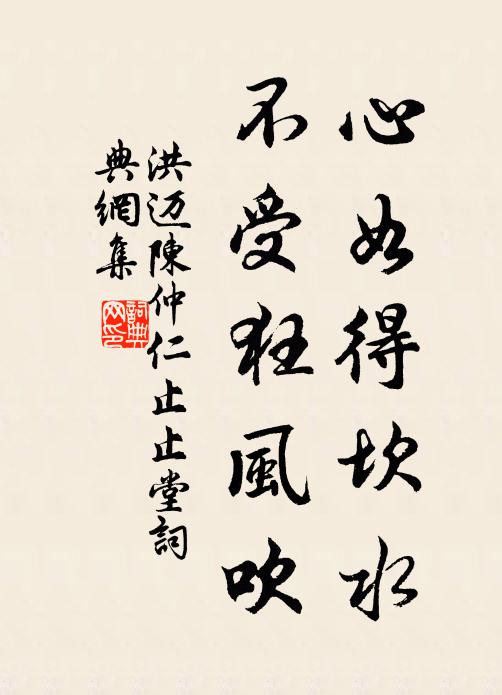 心如得坎水
不受狂風吹
洪迈陳仲仁止止堂詞
典網集
詞典
网印